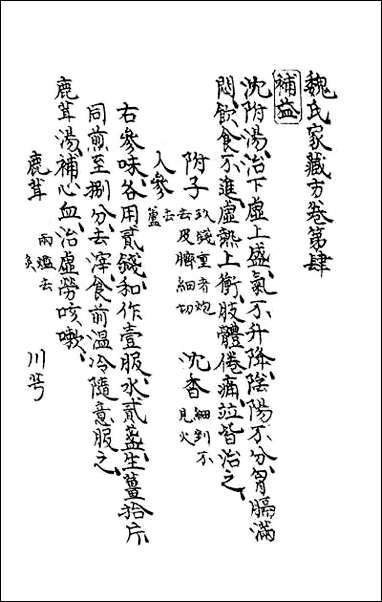 魏氏家藏方卷第肆
補益
沈附湯治下虛上盛氣不升降陰陽不分胷膈滿
悶飲食不進虛熱上衝肢體倦痛竝皆治之
附子 玖錢重者炮去皮臍細切 沈香 細剉不見火
人參 去蘆
右參味各用貳錢和作壹服水貳盞生薑拾片
同煎至捌分去滓食前温冷隨意服之
鹿茸湯補心血治虛勞咳嗽
鹿茸 兩爁去 川芎